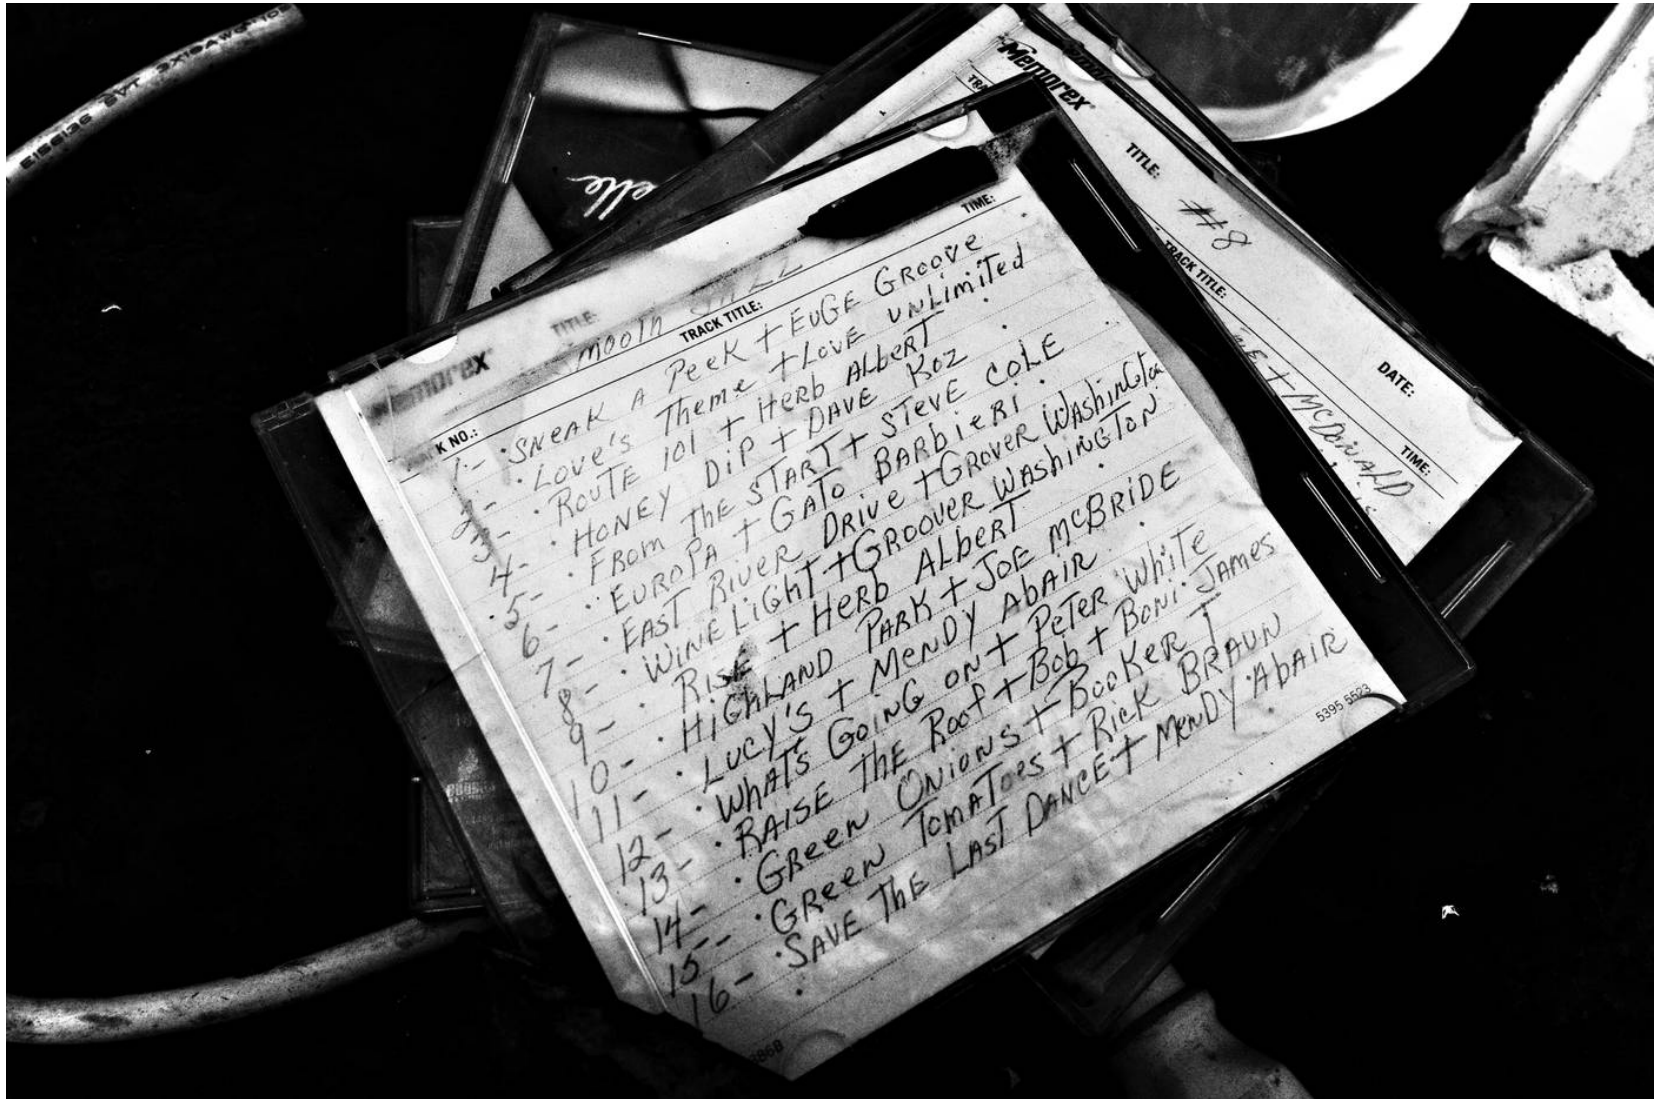 Memorex
TITLE:
TIME:
TRACK TITLE:
K NO.:
1- SNEAK A PEEK + EUGE GROOVE
2- LOVE'S THEME + LOVE UNLIMITED
3- ROUTE 101 + HERB ALBERT
4- HONEY DIP + DAVE KOZ
5- FROM THE START + STEVE COLE
6- EUROPA + GATO BARBIERI
7- EAST RIVER DRIVE + GROVER WASHINGTO
8- WINELIGHT + GROOVER WASHINGTON
9- RISE + HERB ALBERT
10- HIGHLAND PARK + JOE McBRIDE
11- LUCY'S + MENDY ABAIR
12- WHATS GOING ON + PETER WHITE
13- RAISE THE ROOF + BOB + BONI JAMES
14- GREEN ONIONS + BOOKER T
15- GREEN TOMATOES + RICK BRAUN
16- SAVE THE LAST DANCE + MENDY ABAIR
5395 5523
Memorex
TITLE:
#8
TRACK TITLE:
DATE:
+ McDONALD
TIME:
elle